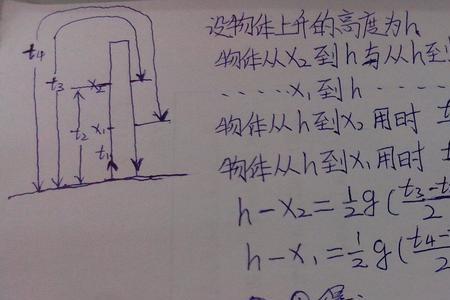 t4
t3
x2
t2
x1
t1
设物体上升的高度为h
物体从x2到h与从h到
·····x1到h·····
物体从h到x2用时 t
物体从h到x1用时 t
h-x2=½g(t3-t
2
h-x1=½g(t4-
2